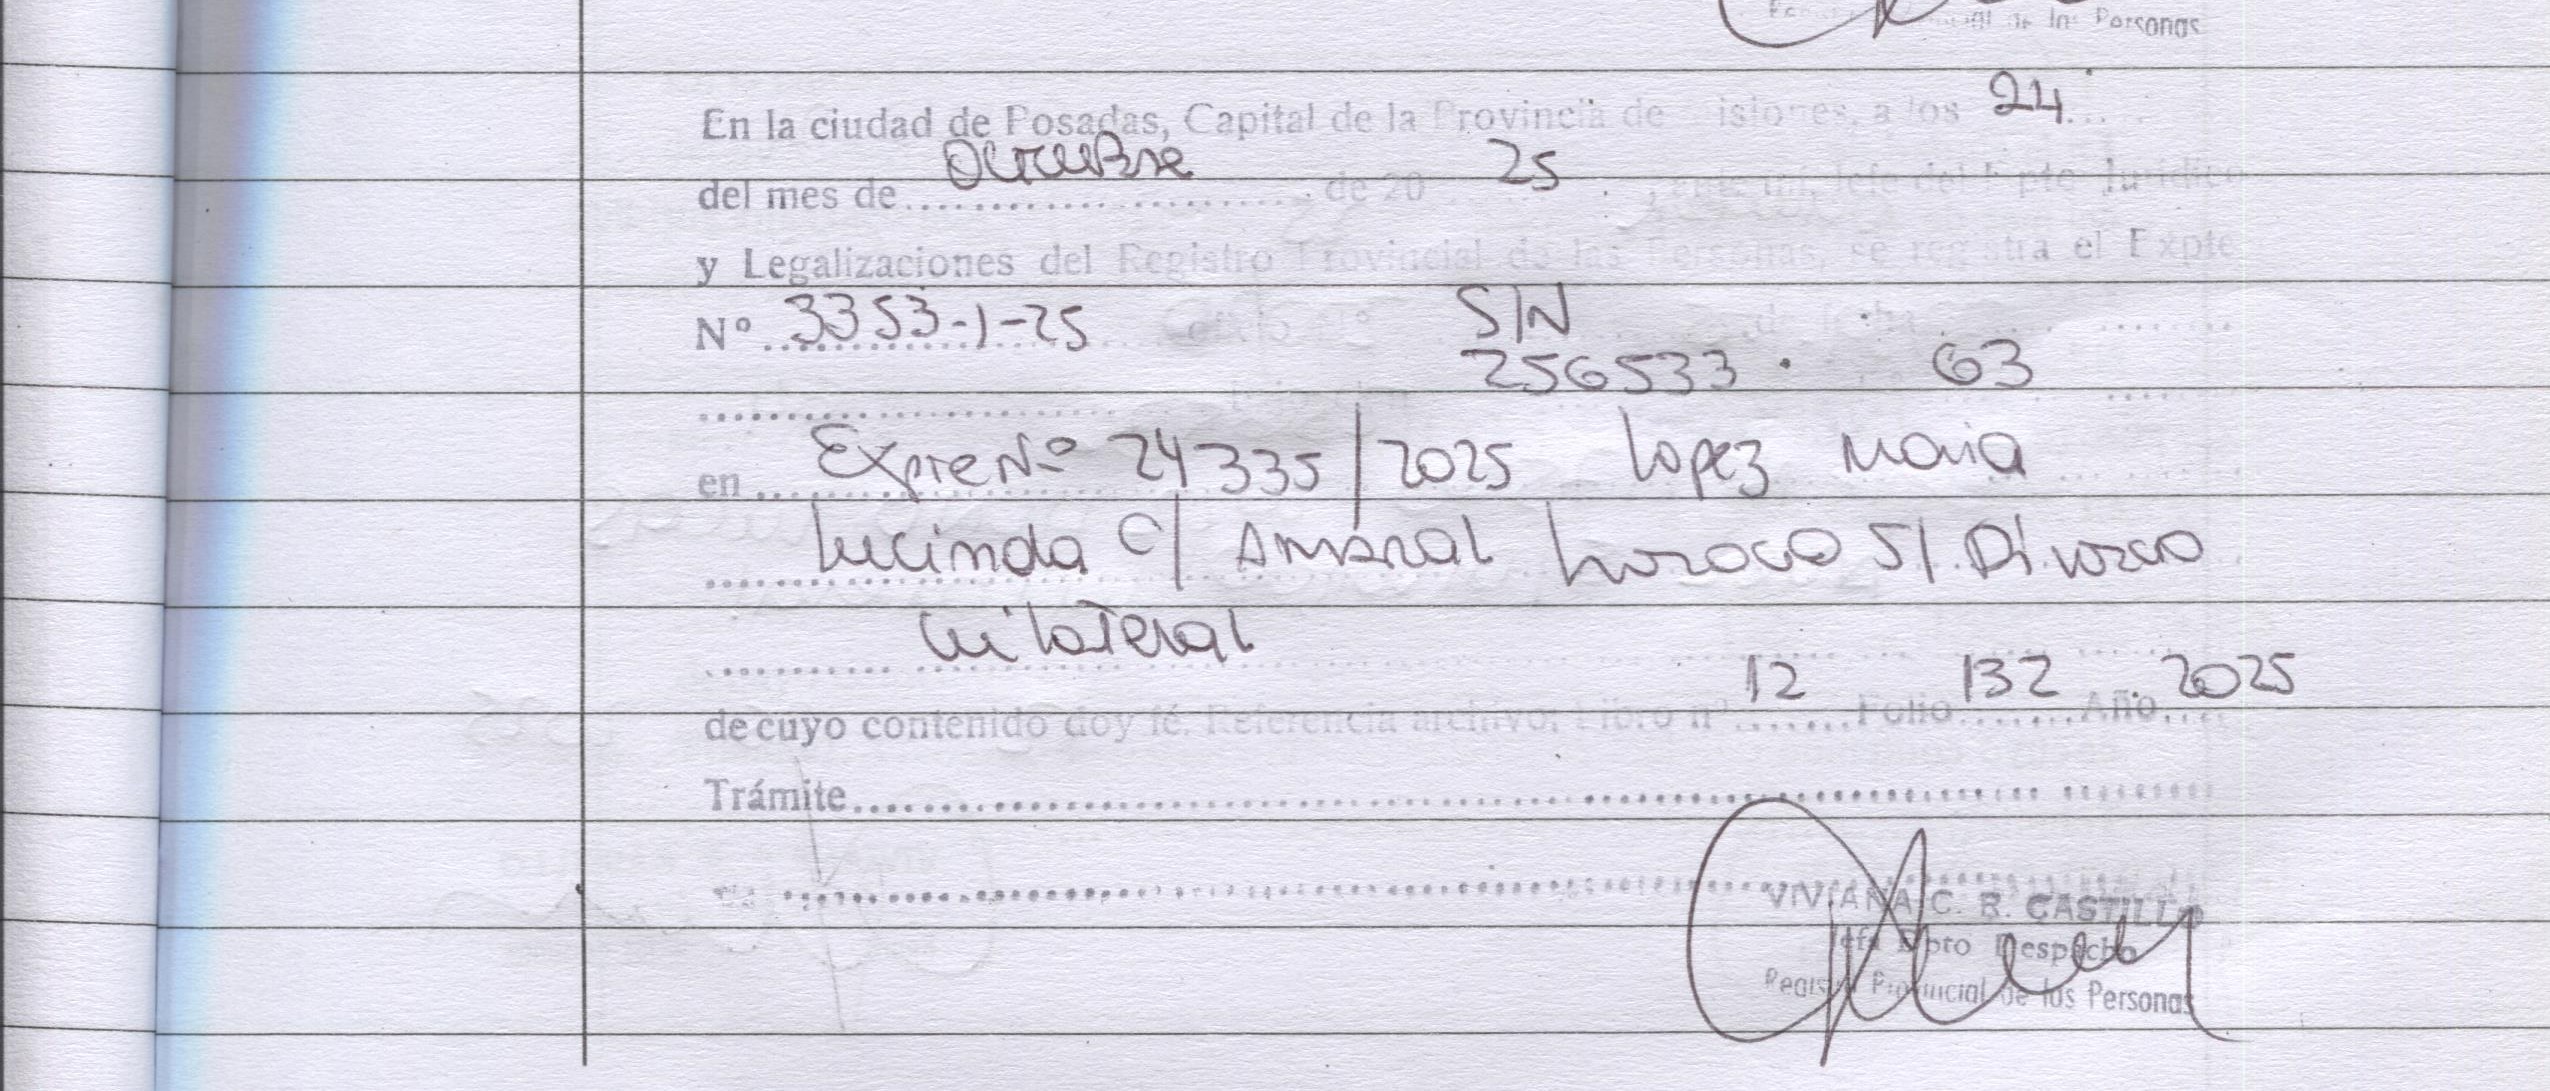 de las Personas
En la ciudad de Posadas, Capital de la Provincia de isiones, a los 24
del mes de Octubre de 20 25, ante mi, Jefe del Dpto Jurídico
y Legalizaciones del Registro Provincial de las Personas, se registra el Expte
Nº 3353-1-25 S/N de fecha
256533 . 63
en Expte Nº 24335/2025 Lopez Maria
Lucinda C/ Amaral Horacio S/ Divorcio
Unilateral
de cuyo contenido doy fé. Referencia archivo: Libro nº 12 Folio 132 Año 2025
Trámite
VIVIANA C. R. CASTILLO
Jefa Dpto Despacho
Registro Provincial de las Personas